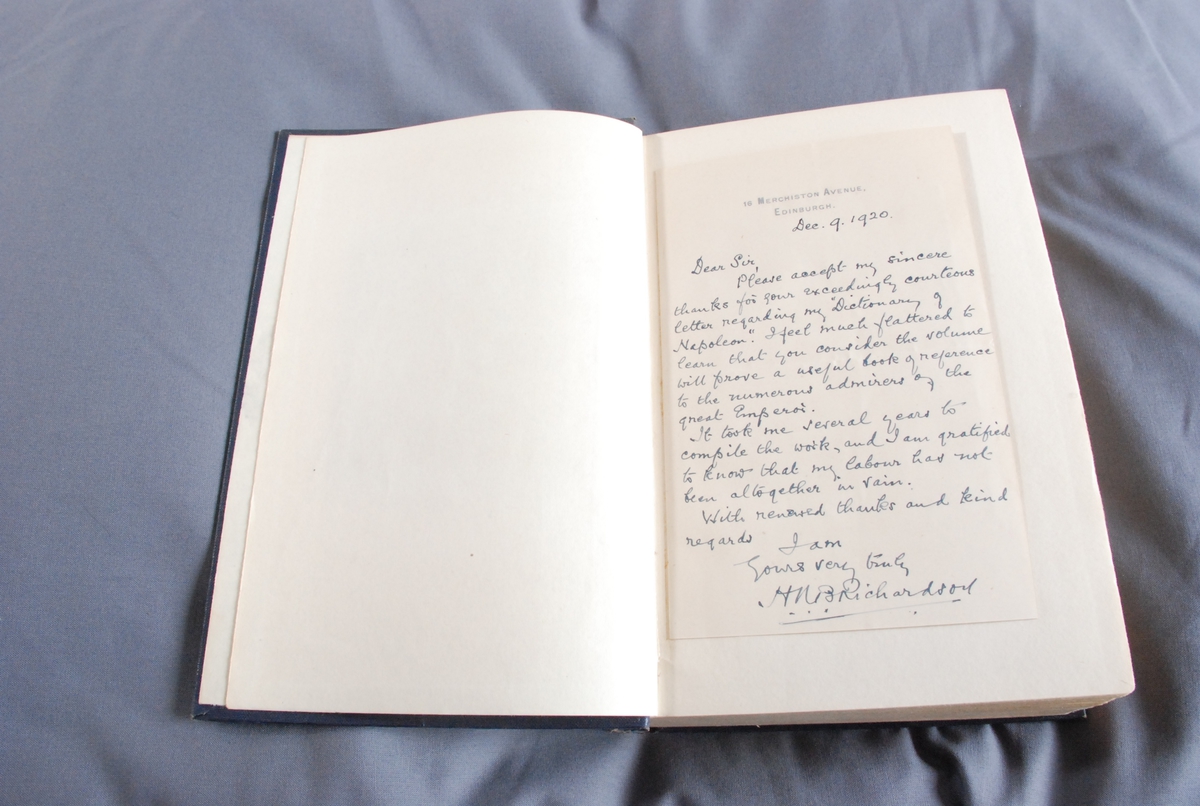 10 MERCHISTON AVENUE,
EDINBURGH.
Dec. 9. 1920.
Dear Sir,
Please accept my sincere
thanks for your exceedingly courteous
letter regarding my "Dictionary of
Napoleon". I feel much flattered to
learn that you consider the volume
will prove a useful book of reference
to the numerous admirers of the
great Emperor.
It took me several years to
compile the work, and I am gratified
to know that my labour has not
been altogether in vain.
With renewed thanks and kind
regards I am
Yours very truly
HNBRichardson